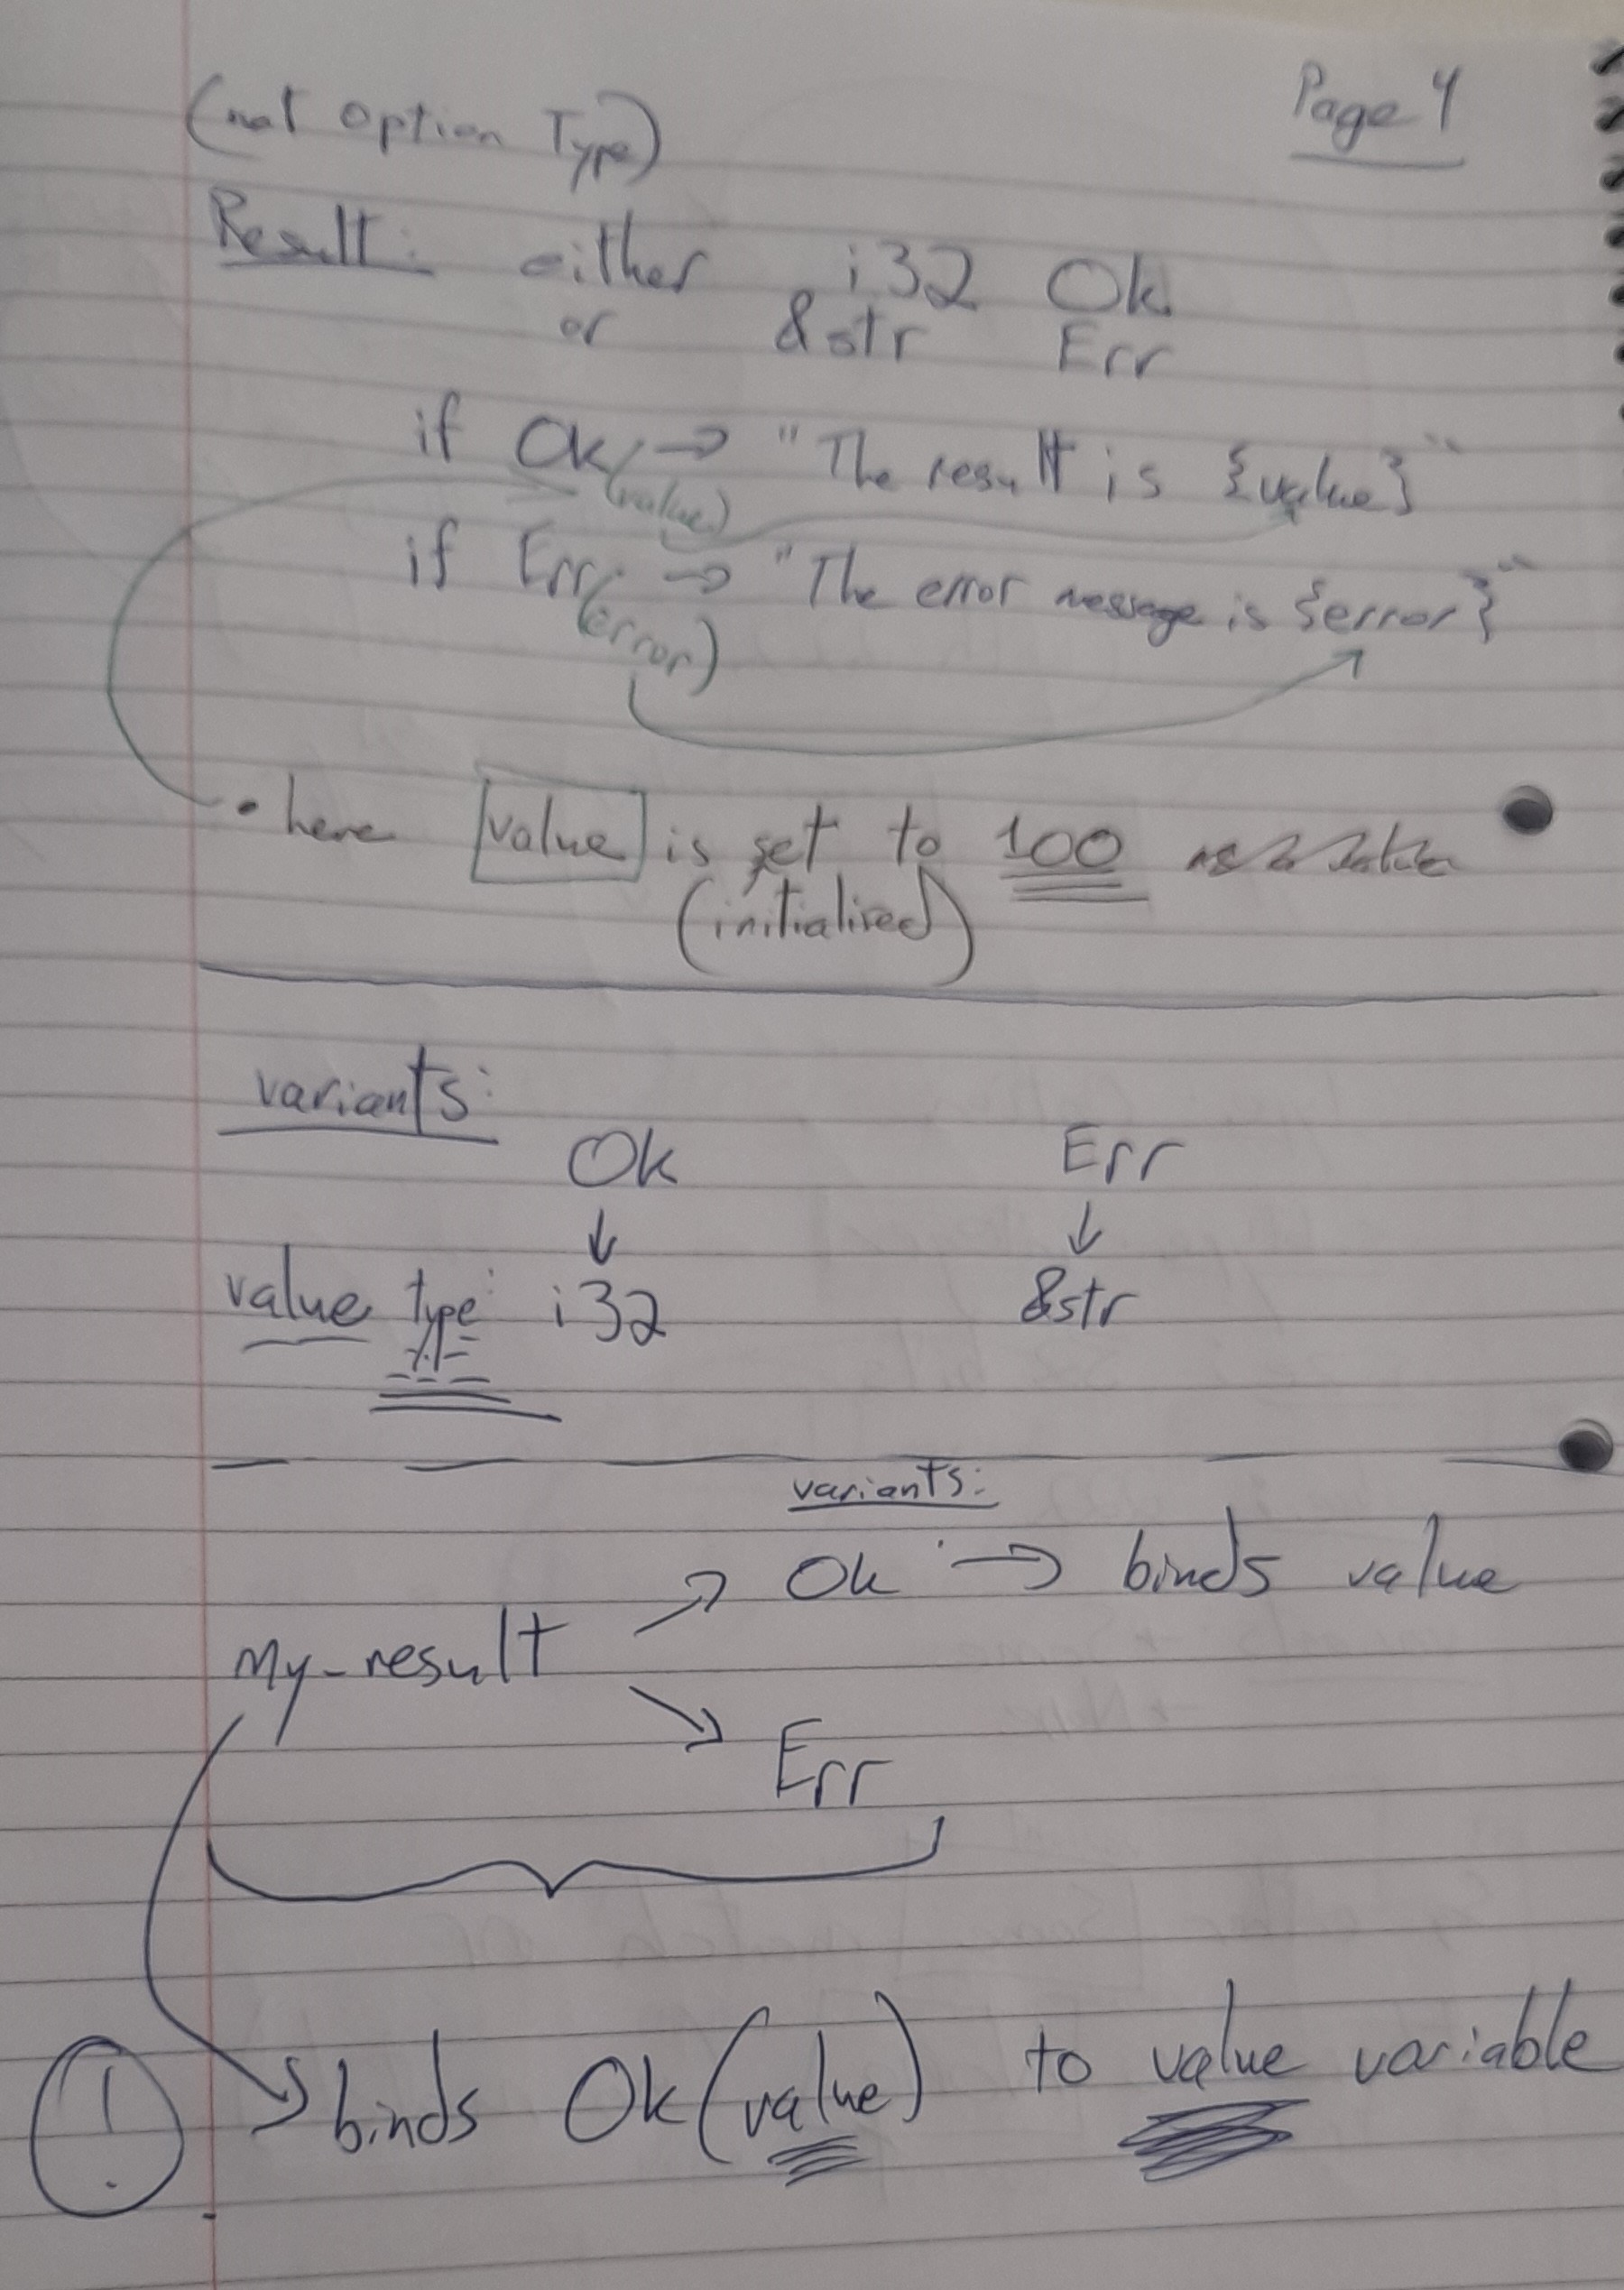 Page 4
(not Option Type)
Result: either i32 Ok
or &str Err
if Ok(value) → "The result is {value}"
if Err(error) → "The error message is {error}"
• here value is set to 100
(initialized)
variants:
Ok Err
↓ ↓
value type: i32 &str
variants:
Ok → binds value
my_result
Err
! → binds Ok(value) to value variable